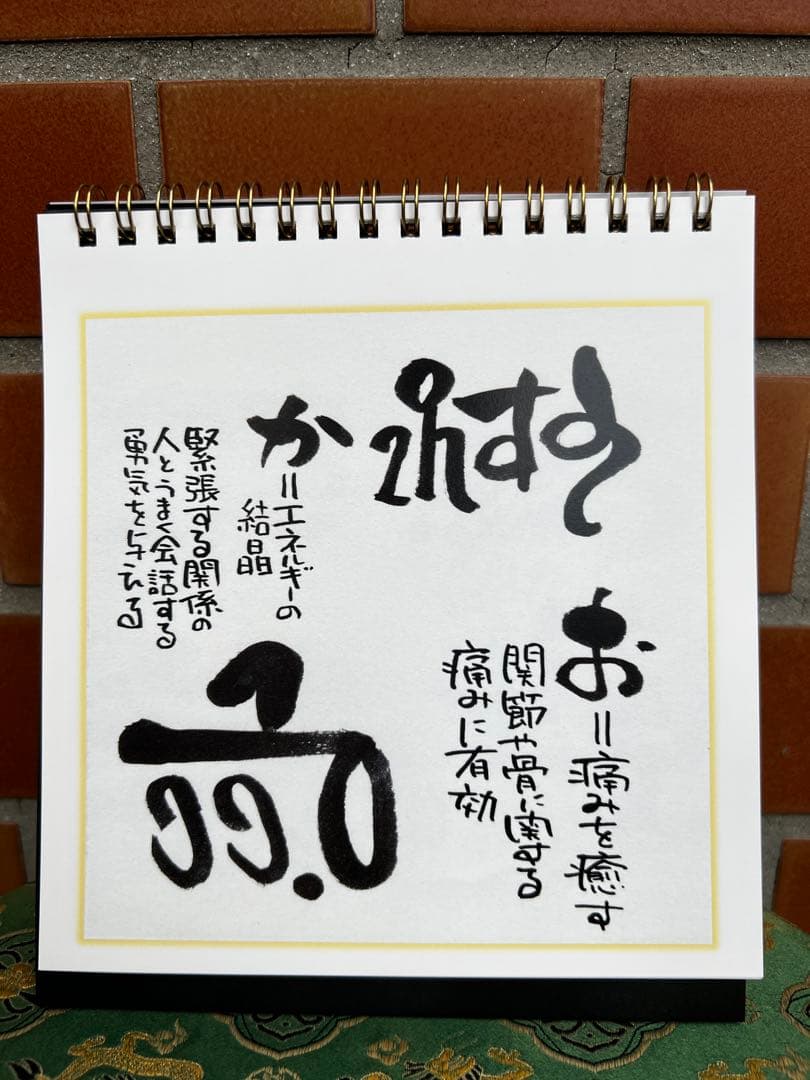 お=痛みを癒す
関節や骨に関する
痛みに有効
か=エネルギーの
結晶
緊張する関係の
人とうまく会話する
勇気を与える